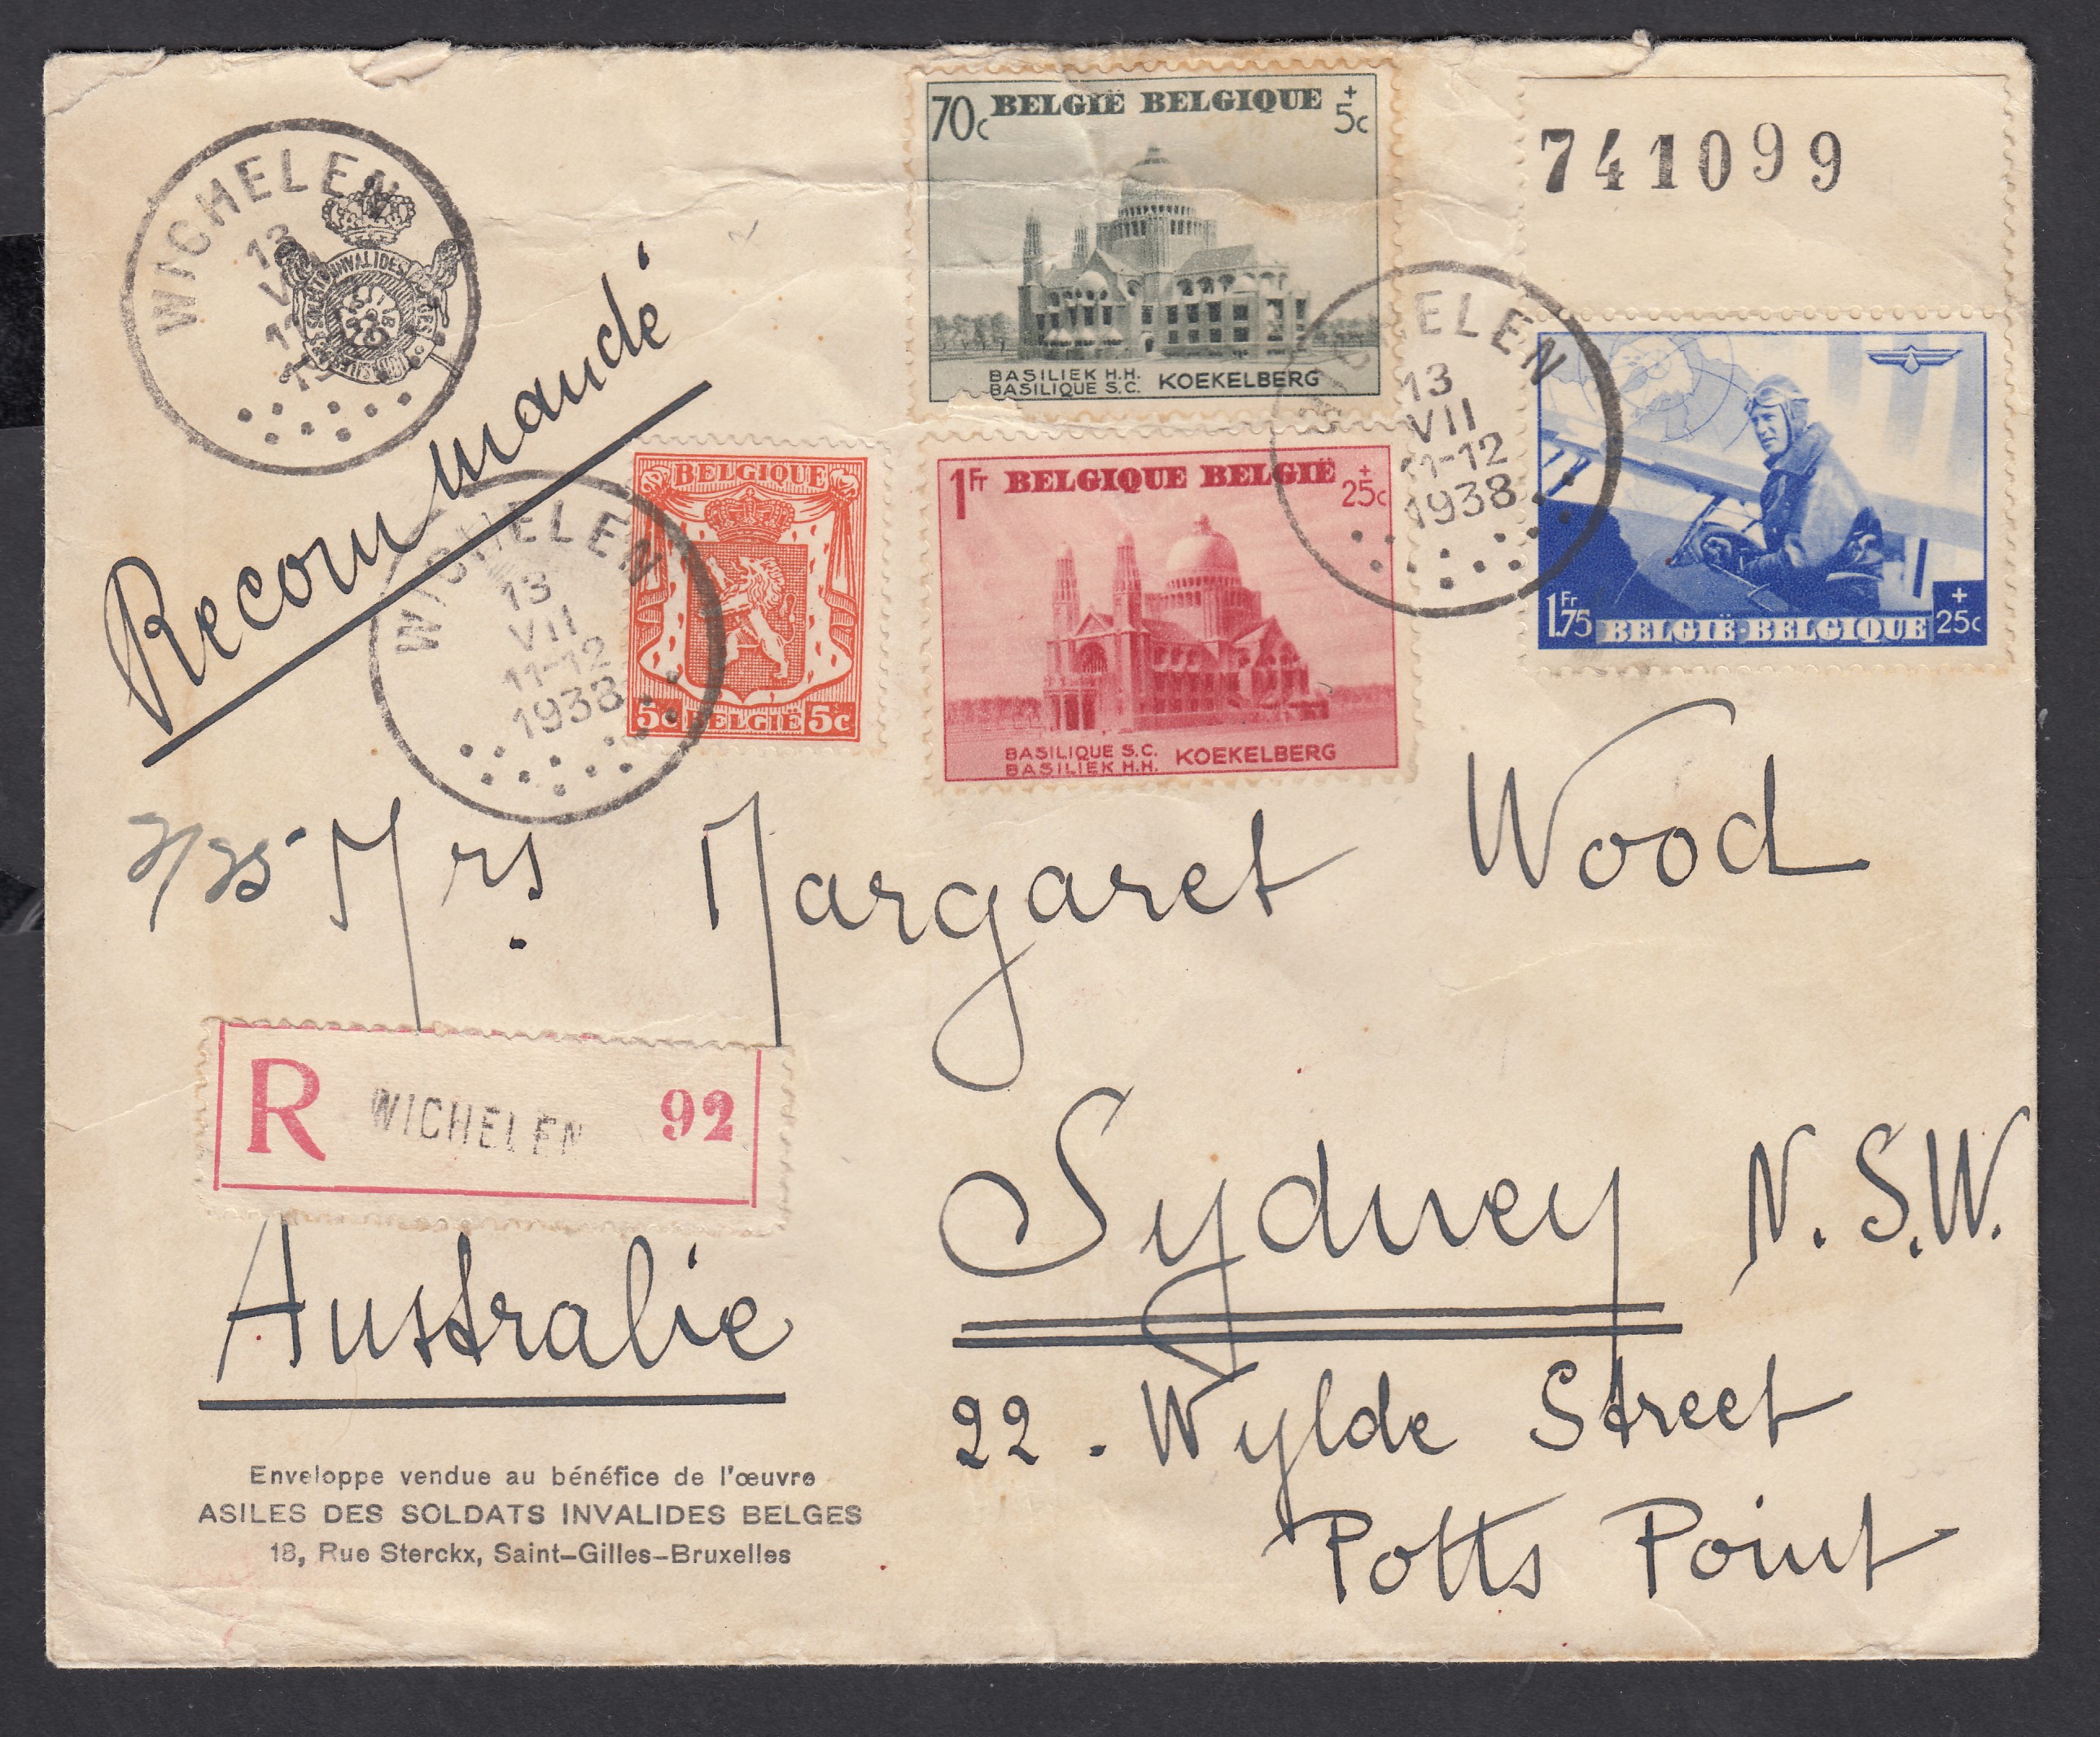 WICHELEN
13
INVALIDES
Recommandé
70c BELGIË BELGIQUE + 5c
BASILIEK H.H.
BASILIQUE S.C. KOEKELBERG
741099
WICHELEN
13
VII
11-12
1938
1Fr BELGIQUE BELGIË + 25c
BASILIQUE S.C.
BASILIEK H.H. KOEKELBERG
1Fr.75 BELGIË-BELGIQUE + 25c
BELGIQUE
5c BELGIË 5c
WICHELEN
13
VII
11-12
1938
Mrs. Margaret Wood
R WICHELEN 92
Sydney N.S.W.
Australie
22. Wylde Street
Potts Point
Enveloppe vendue au bénéfice de l'œuvre
ASILES DES SOLDATS INVALIDES BELGES
18, Rue Sterckx, Saint-Gilles-Bruxelles